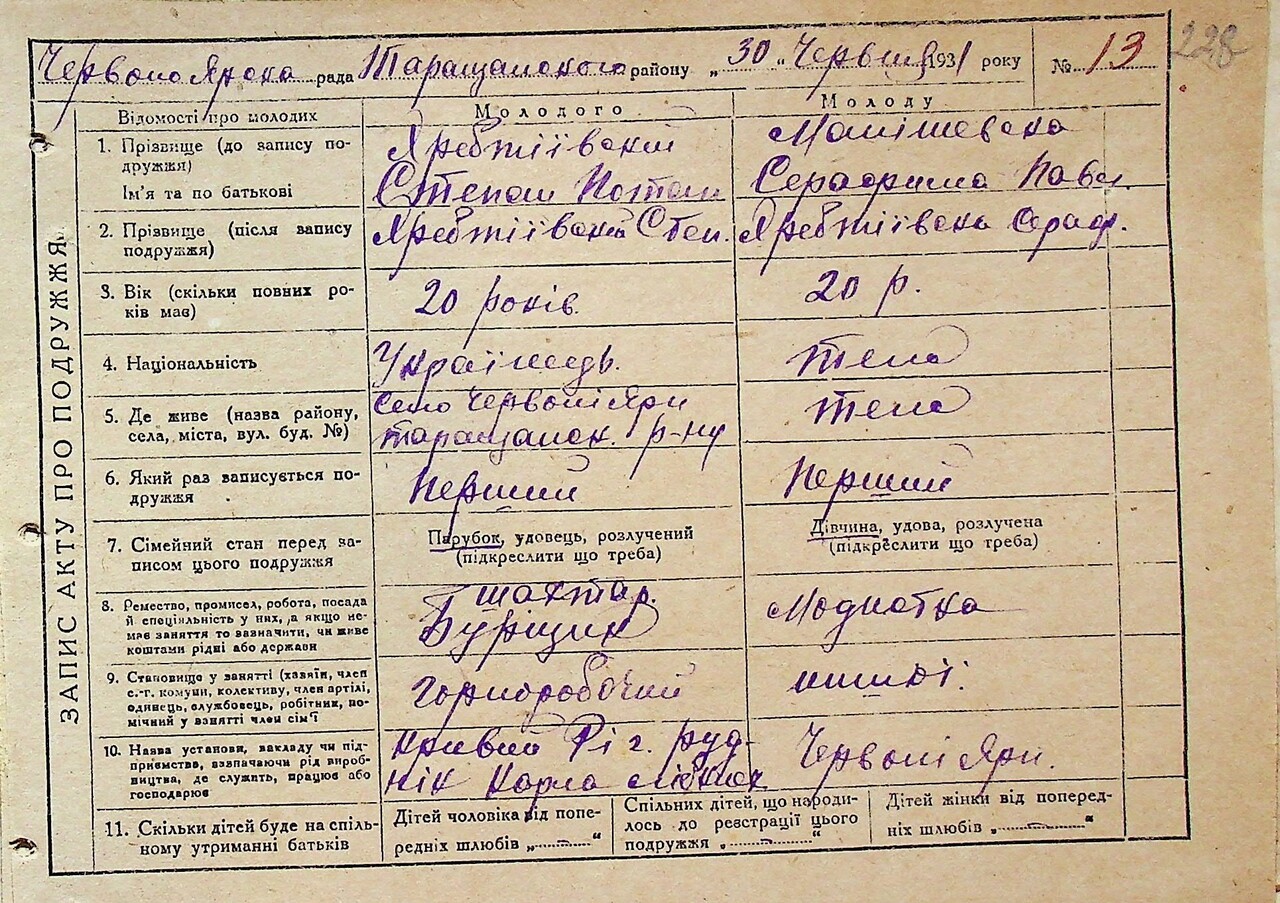 228
Червоно Ярска рада Таращанського району „ 30 “ Червня 1931 року № 13
ЗАПИС АКТУ ПРО ПОДРУЖЖЯ
Відомості про молодих
Молодого
Молоду
1. Прізвище (до запису по-
дружжя)
Ім'я та по батькові
Степан Потап
Серафима Павл.
2. Прізвище (після запису
подружжя)
3. Вік (скільки повних ро-
ків має)
20 років.
20 р.
4. Національність
Українець.
теж
5. Де живе (назва району,
села, міста, вул. буд. №)
село Червоні Яри
таращанск. р-ну
теж
6. Який раз записується по-
дружжя
Перший
Перший
7. Сімейний стан перед за-
писом цього подружжя
Парубок, удовець, розлучений
(підкреслити що треба)
Дівчина, удова, розлучена
(підкреслити що треба)
8. Ремество, промисел, робота, посада
й спеціяльність у них, а якщо не-
має заняття то зазначити, чи живе
коштами рідні або держави
шахтар.
Бурщик
Модистка
9. Становище у занятті (хазяїн, член
с.-г. комуни, колективу, член артілі,
одинець, службовець, робітник, по-
мічний у занятті член сім'ї
горноробочий
10. Назва установи, закладу чи під-
приємства, зазначаючи рід вироб-
ництва, де служить, працює або
господарює
Кривий Ріг. руд-
нік Карла Лібкнех
Червоні Яри.
11. Скільки дітей буде на спіль-
ному утриманні батьків
Дітей чоловіка від попе-
редніх шлюбів „ “
Спільних дітей, що народи-
лось до реєстрації цього
подружжя „ “
Дітей жінки від поперед-
ніх шлюбів „ “